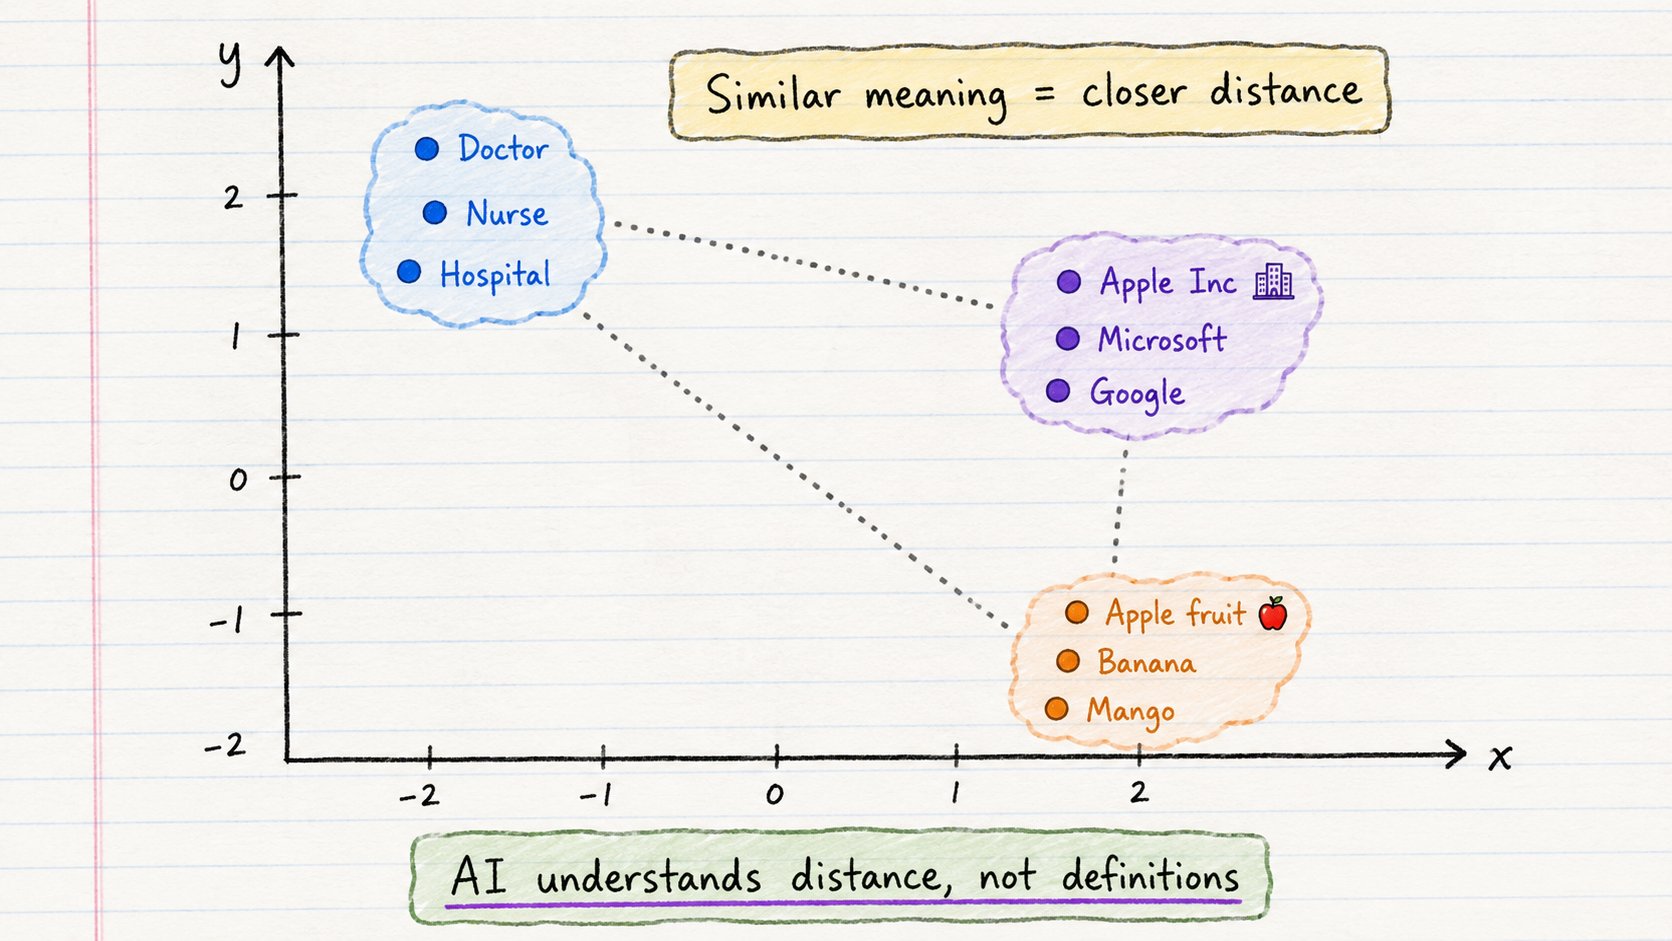 y
Similar meaning = closer distance
Doctor
Nurse
Hospital
Apple Inc
Microsoft
Google
Apple fruit
Banana
Mango
2
1
0
-1
-2
-2 -1 0 1 2
x
AI understands distance, not definitions